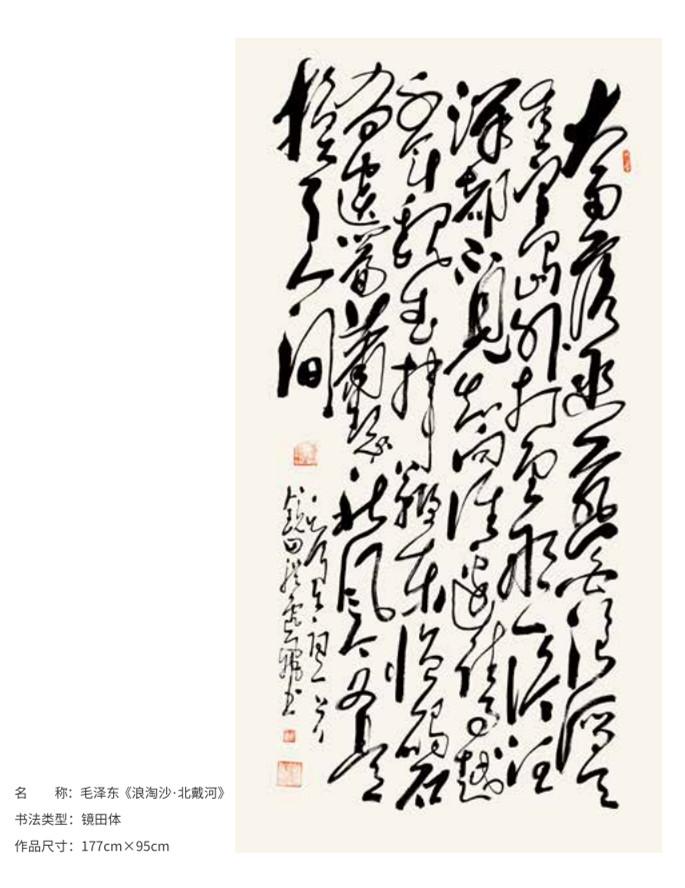 大雨落幽燕白浪滔天
秦皇島外打魚船一片汪
洋都不見知向誰邊往事越
千年魏武揮鞭東臨碣石
有遺篇蕭瑟秋風今又是
換了人間
名　　称：毛泽东《浪淘沙·北戴河》
书法类型：镜田体
作品尺寸：177cm×95cm